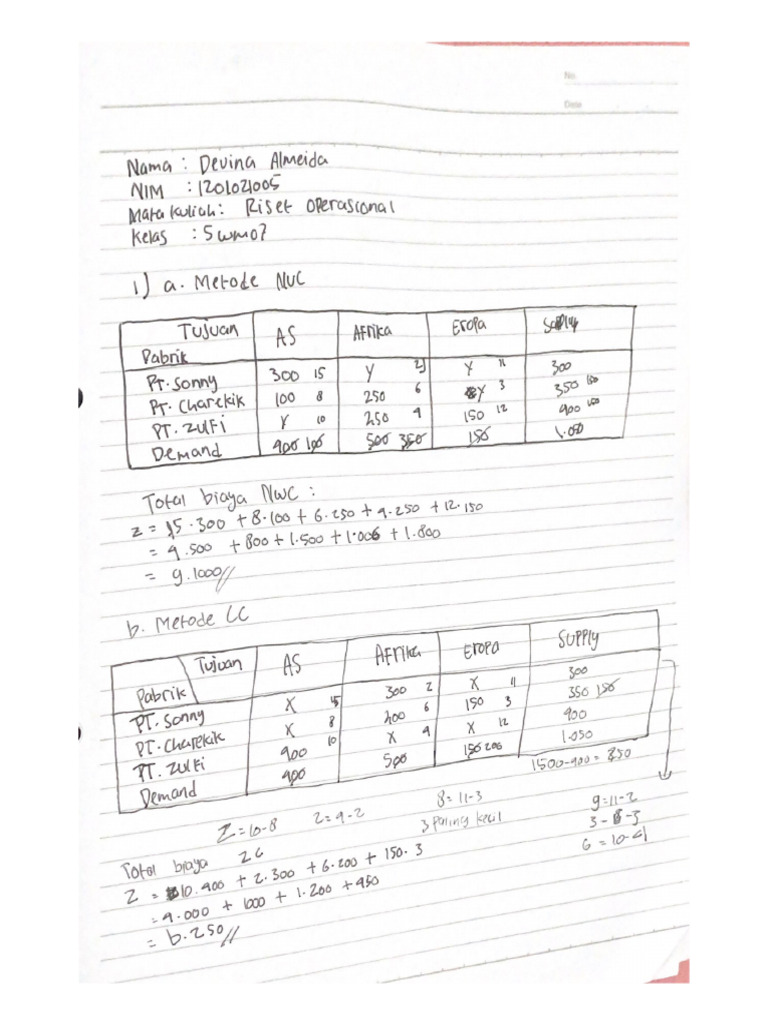 No.
Date
Nama : Devina Almeida
NIM : 1201021005
Mata kuliah : Riset Operasional
Kelas : 5WM07
1) a. Metode NWC
Tujuan AS Afrika Eropa Supply
Pabrik
PT. Sonny 300 15 X 2 X 11 300
PT. Charekik 100 8 250 6 X 3 350 150
PT. Zulfi X 10 250 4 150 12 400 150
Demand 400 100 500 350 150 1.050
Total biaya NWC :
Z = 15.300 + 8.100 + 6.250 + 4.250 + 12.150
= 4.500 + 800 + 1.500 + 1.000 + 1.800
= 9.1000//
b. Metode LC
Tujuan AS Afrika Eropa Supply
Pabrik 300 2 X 11 300
PT. Sonny X 15 200 6 150 3 350 150
PT. Charekik X 8 X 4 X 12 400
PT. Zulfi 400 10 500 150 200 1.050
Demand 400 1500-400 =
Z = 10-8 2 = 4-2 8 = 11-3 9 = 11-2
3 Paling kecil 3 - 6 - 3
6 = 10-4
Total biaya
Z = 10.400 + 2.300 + 6.200 + 150.3
= 4.000 + 1000 + 1.200 + 450
= 6.250//